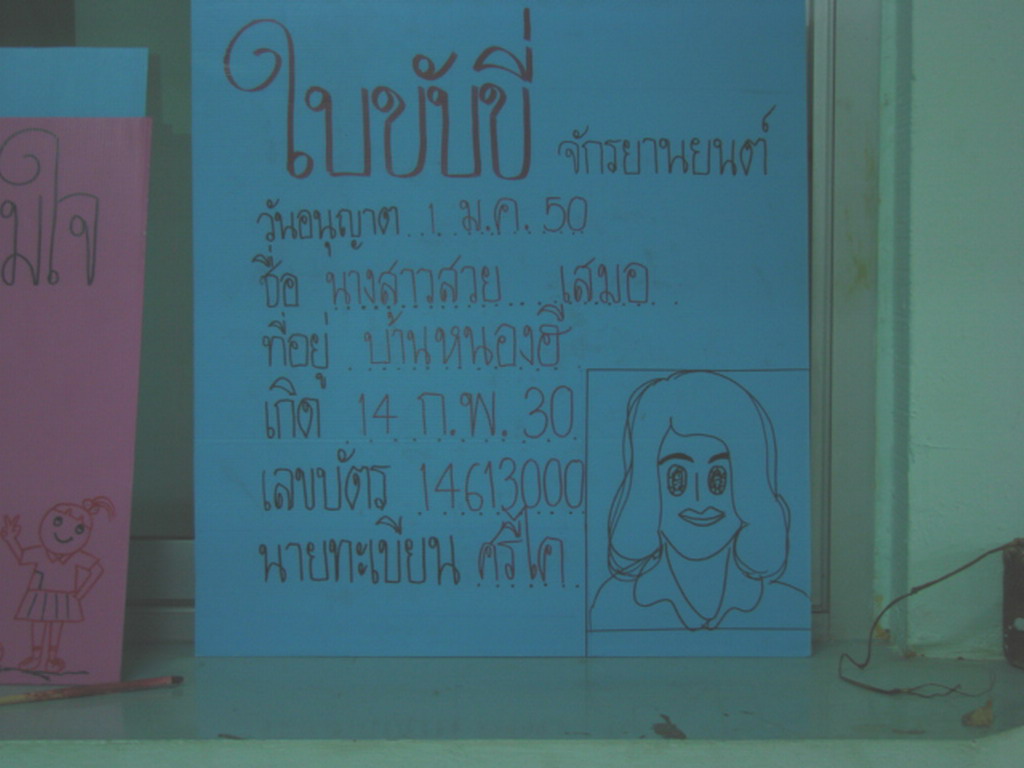 ใบขับขี่ จักรยานยนต์
วันอนุญาต 1 ม.ค. 50
ชื่อ นางสาวสวย เสมอ
ที่อยู่ บ้านหนองฮี
เกิด 14 ก.พ. 30
เลขบัตร 14613000
นายทะเบียน ศรีไค
มใจ